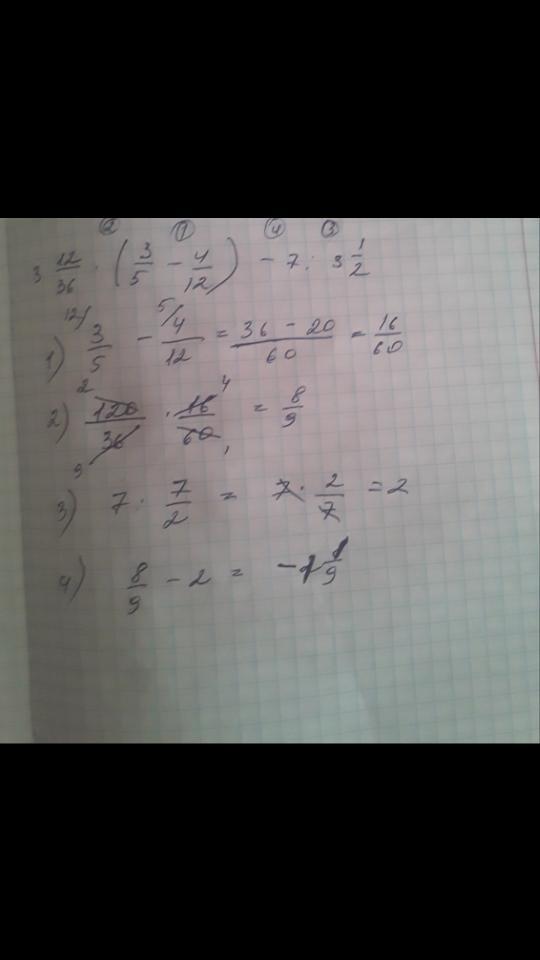 ② ① ④ ③
3 12/36 · (3/5 - 4/12) - 7 : 3 1/2
1) 12/ 3/5 - 5/ 4/12 = 36 - 20/60 = 16/60
2) 2 120/36 9 · 16 4/60 1 = 8/9
3) 7 : 7/2 = 7 · 2/7 = 2
4) 8/9 - 2 = -1 1/9